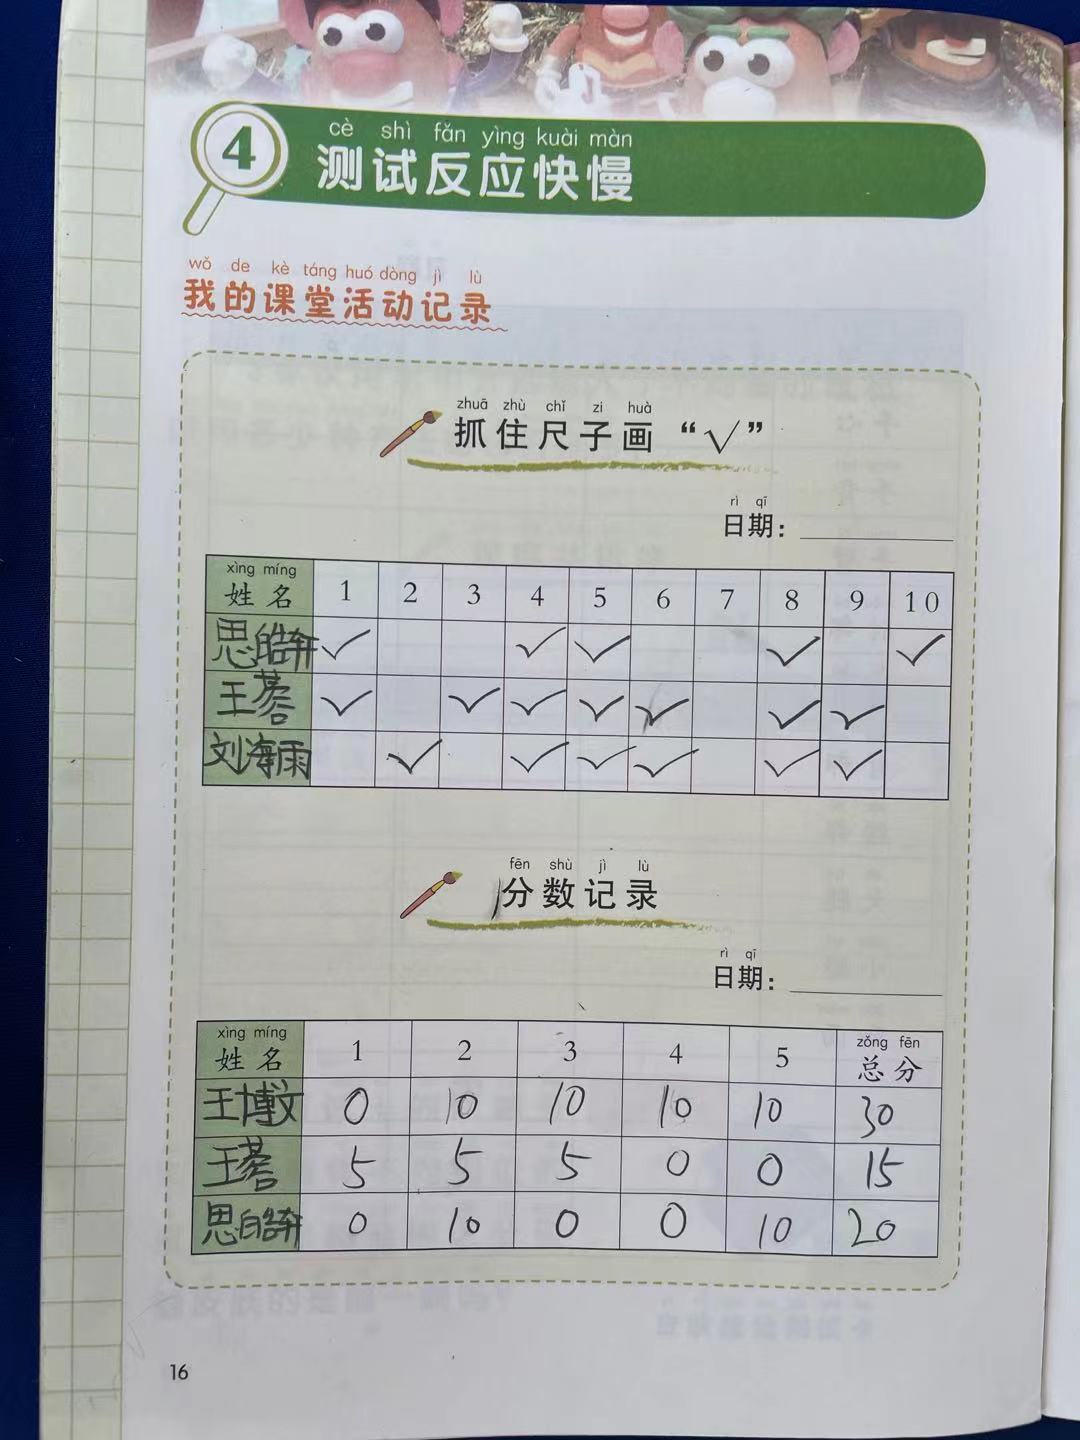 cè shì fǎn yìng kuài màn
4 测试反应快慢
wǒ de kè táng huó dòng jì lù
我的课堂活动记录
zhuā zhù chǐ zi huà
抓住尺子画“√”
rì qī
日期：
xìng míng
姓名 1 2 3 4 5 6 7 8 9 10
思皓轩 √ √ √ √ √
王蓉 √ √ √ √ √ √ √
刘海雨 √ √ √ √ √ √
fēn shù jì lù
分数记录
rì qī
日期：
xìng míng zǒng fēn
姓名 1 2 3 4 5 总分
王博文 0 10 10 10 10 30
王蓉 5 5 5 0 0 15
思皓轩 0 10 0 0 10 20
16